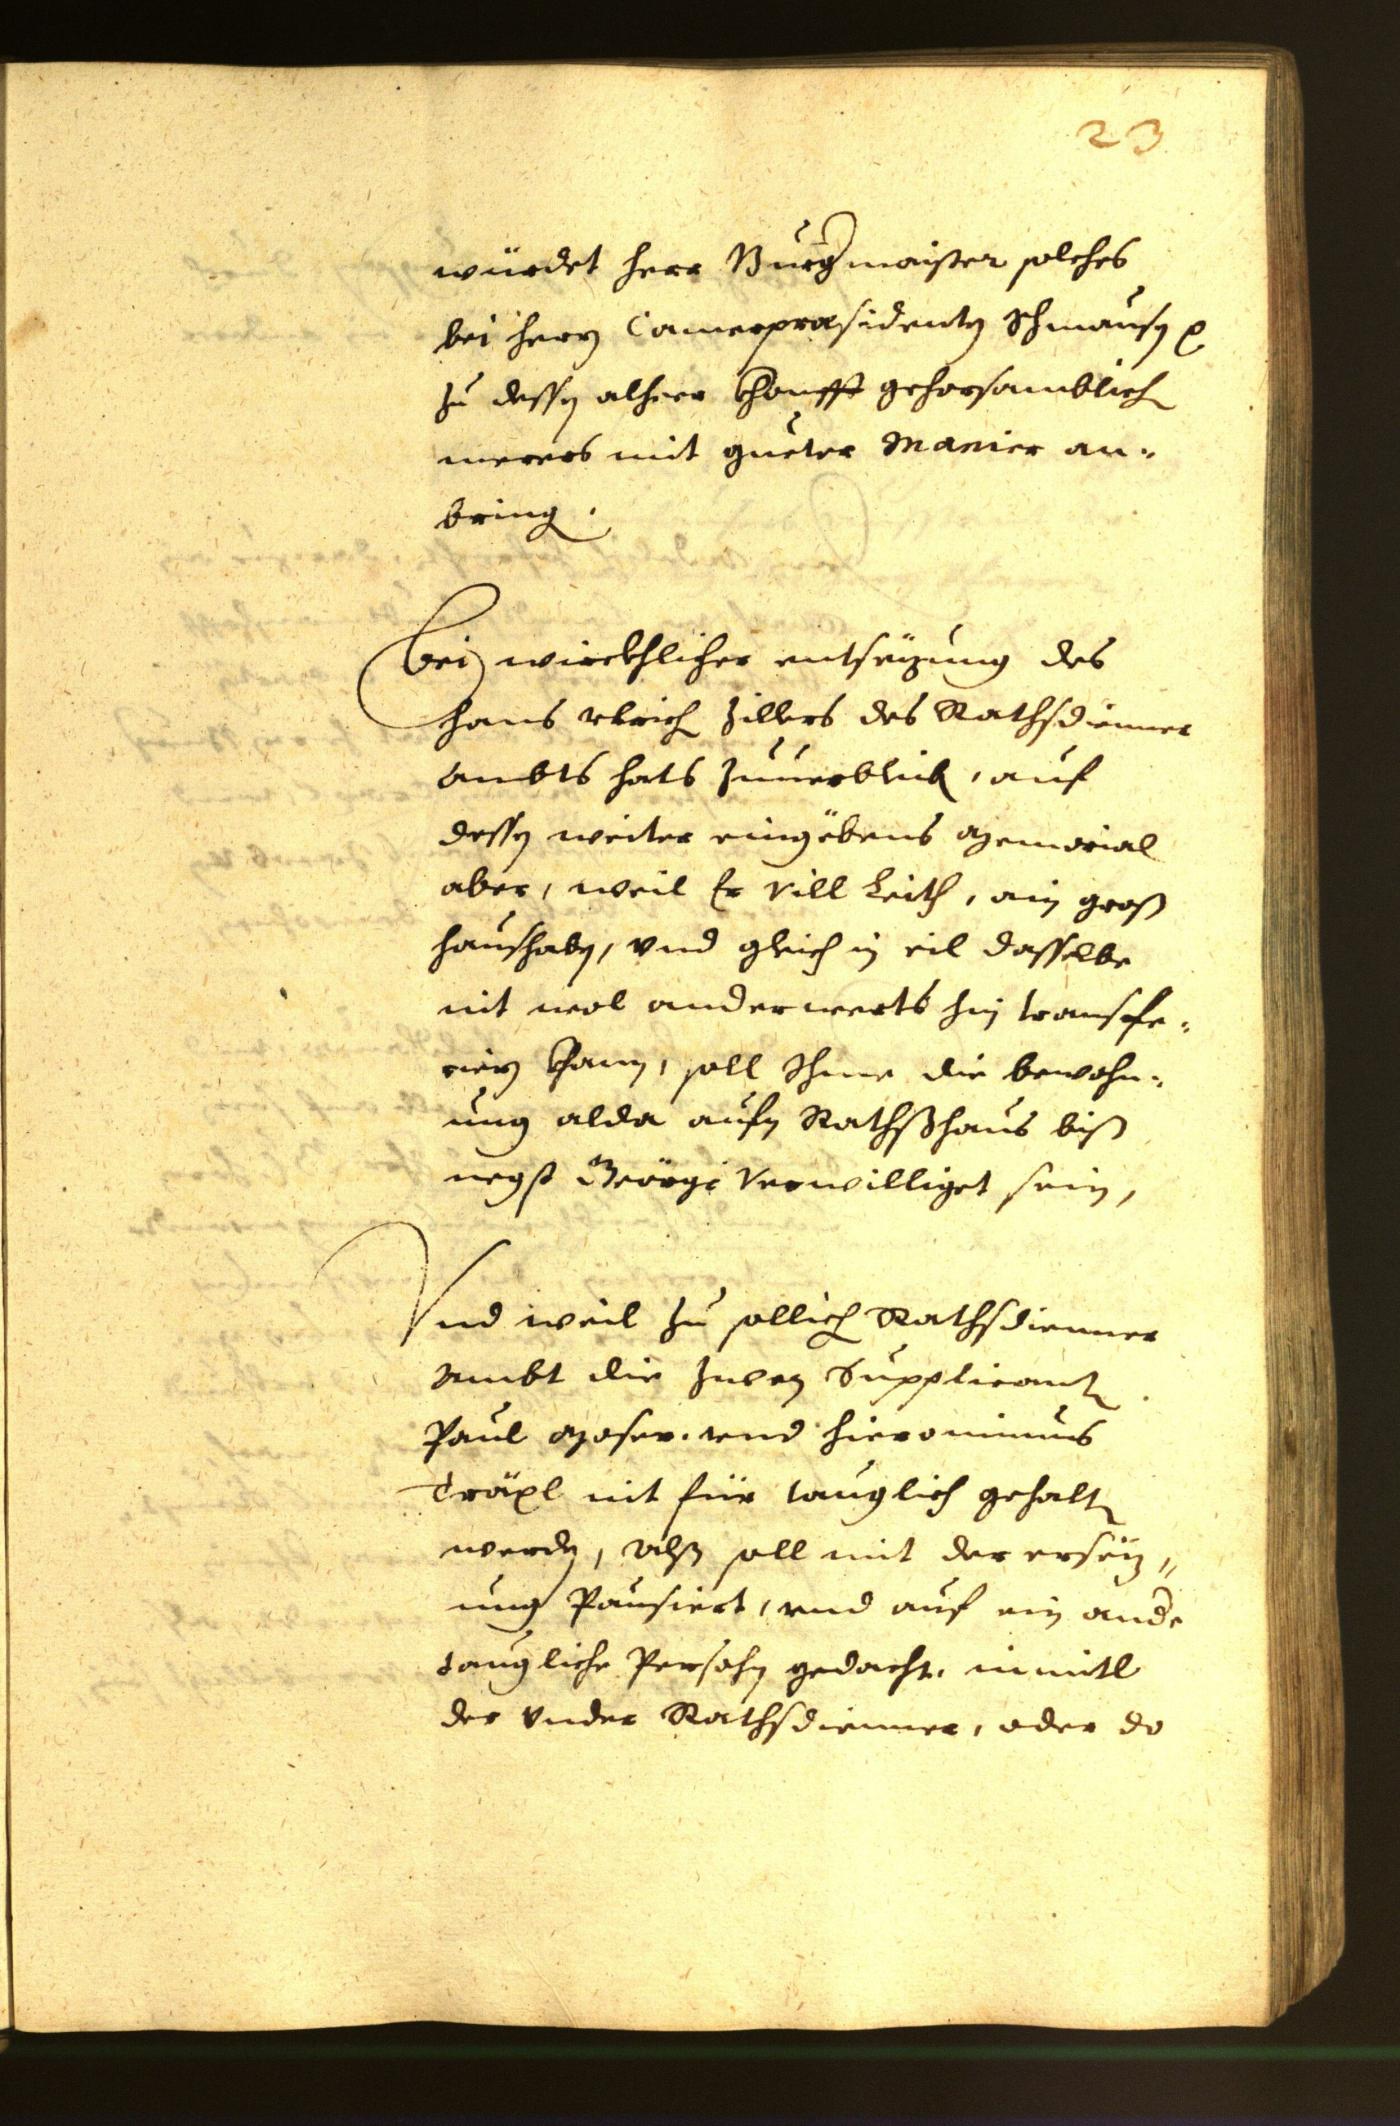 23
würdet herr Burgmaister solches
bei hern Camerpræsidenten Schmausen
zu dessen alheer khonfft gehorsamblich
merers mit gueter Manier an-
bring.
Bei wirckhlicher entsezung des
Hans Ulrich Zillers des Rathsdienner
Ambts hats zuuerbleib, auf
dessen weiter eingebens Memorial
aber, weil Er vill Leith, ain groß
haushaben, vnd gleich in eil dasselbe
nit wol anderwerts hin transfe-
riern khann, soll Ihme die bewohn-
ung alda aufn Rathßhaus biß
negst Geörgi verwilliget sein,
Vnd weil zu sollich Rathsdienner
Ambt die zween Supplicant
Paul Moser vnd Hieronimus
Träxl nit für tauglich gehalt
werden, Alß soll mit der ersez-
ung Pausiert, vnd auf ein ande
taugliche Persohn gedacht, inmitl
der Vnder Rathsdienner, oder do